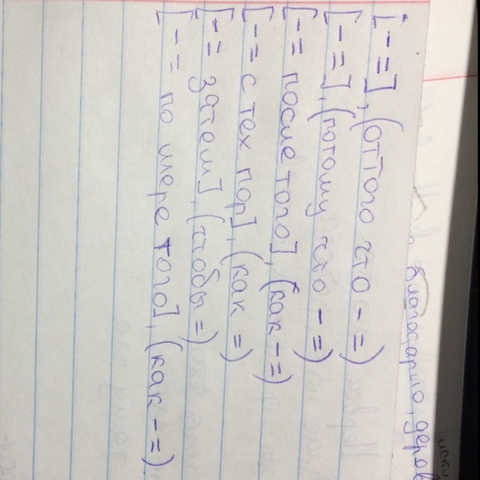 [- =], (оттого что - =)
[- =], (потому что - =)
[- = после того], (как - =)
[- = с тех пор], (как =)
[- = затем], (чтобы =)
[- = по мере того], (как - =).